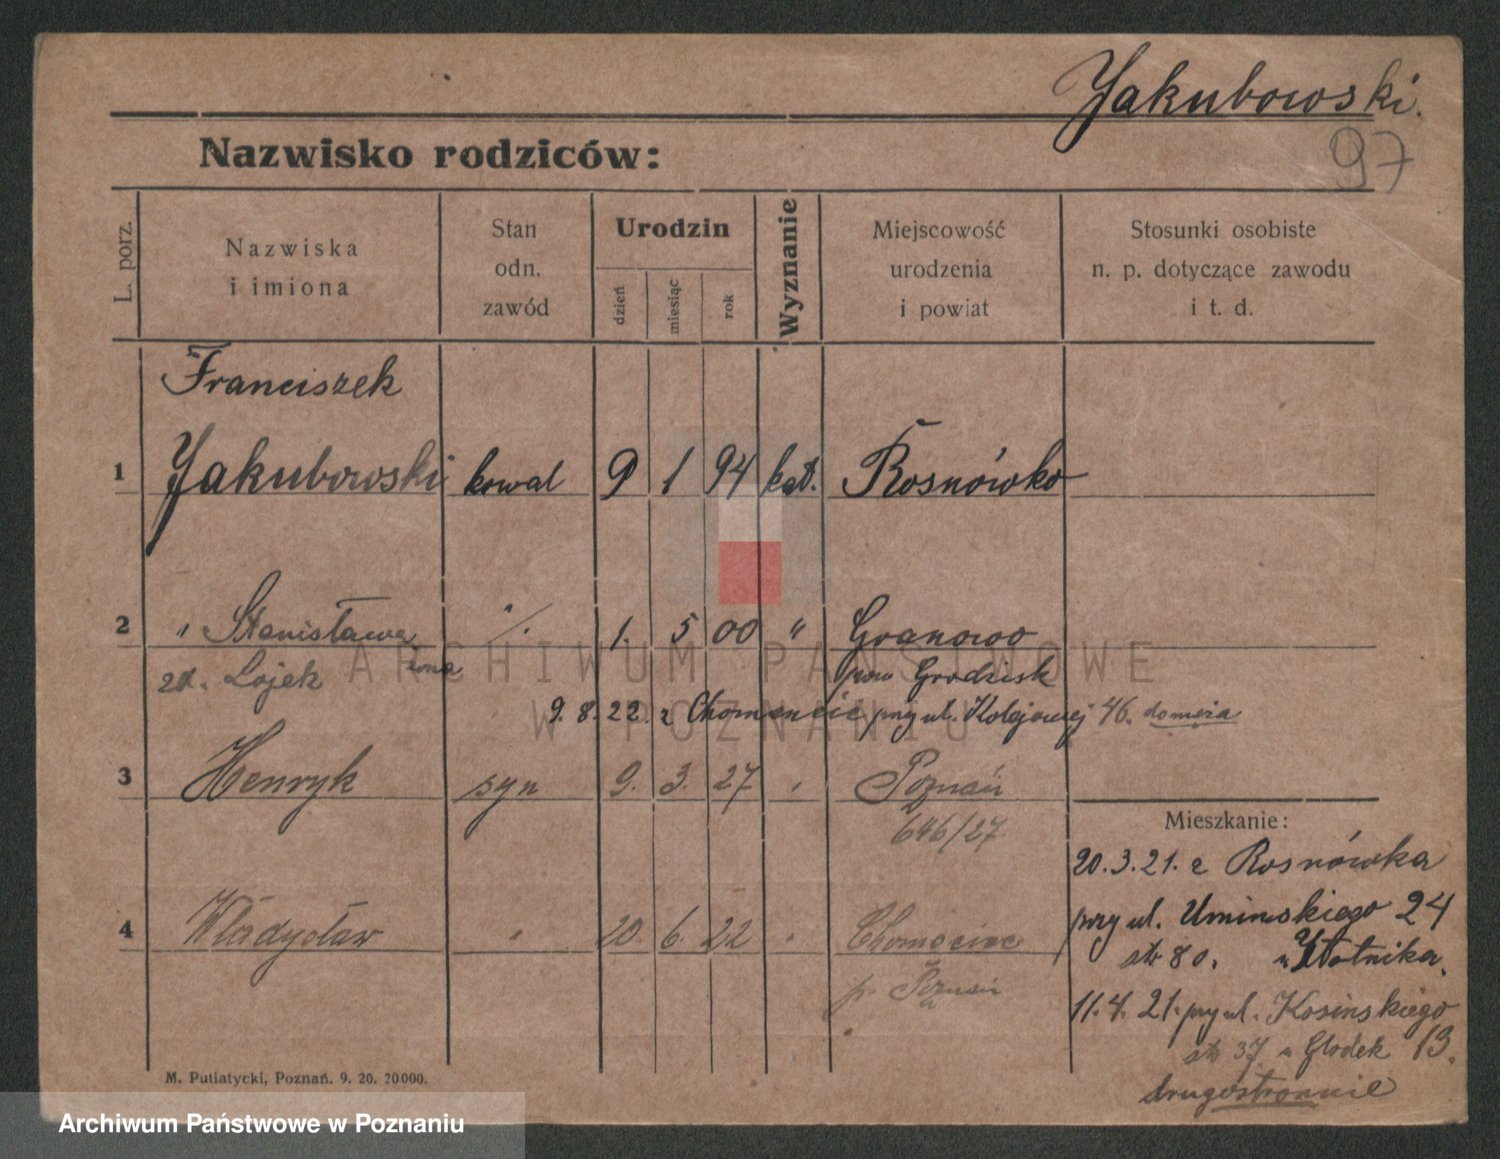 Jakubowski.
97
Nazwisko rodziców:
L. porz.
Nazwiska
i imiona
Stan
odn.
zawód
Urodzin
dzień
miesiąc
rok
Wyznanie
Miejscowość
urodzenia
i powiat
Stosunki osobiste
n. p. dotyczące zawodu
i t. d.
Franciszek
1 Jakubowski kowal 9 1 94 kat. Rosnówko
2 " Stanisława 1. 5 00 " Granowo
żona
zd. Lojek pow Grodzisk
9. 8. 22. z Chomencic przy ul. Kolejowej 46.
3 Henryk syn 9. 3. 27 Poznań
646/27
Mieszkanie:
20. 3. 21. z Rosnówka
przy ul. Umińskiego 24
4 Władysław " 20. 6. 22 " Chomęcice
str 80.
p. Poznań
11. 4. 21. przy ul. Kosińskiego
str 37 u Glodek 13.
drugostronnie
M. Putiatycki, Poznań. 9. 20. 20000.
ARCHIWUM PAŃSTWOWE
W POZNANIU
Archiwum Państwowe w Poznaniu